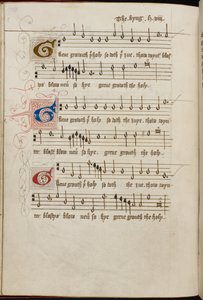 The kyng. h. viij.
Grene growith þe holy so doth þe iue. thow wynter blast
ys blow neuer so hye grene growth the holy.
Grene growith þe holy so doth the iuye. thow wynter
blastys blow neuer so hye grene growth the holy.
Grene growith þe holy so doth the iue. thow wynter
blastys blow neuer so hye grene growth the holy.